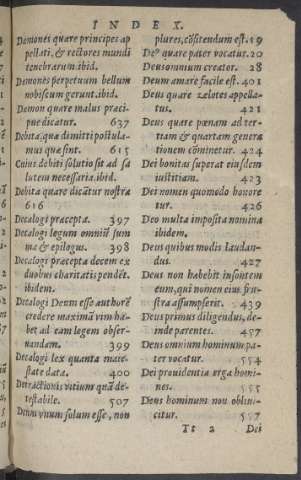 INDEX.
Demones quare principes ap
pellati, & rectores mundi
tenebrarum. ibid.
Demones perpetuum bellum
nobiscum gerunt. ibid.
Demon quare malus praci-
pue dicatur. 637
Debita, qua dimitti postula-
mus, qua sint. 615
Cuius debiti solutio sit ad sa
lutem necessaria. ibid.
Debita quare dicãtur nostra
616
Decalogi pracepta. 397
Decalogi legum omniũ sum
ma & epilogus. 398
Decalogi pracepta decem ex
duobus charitatis pendẽt.
ibidem.
Decalogi Deum esse authorẽ
credere maximã vim ha-
bet ad eam legem obser-
uandam. 399
Decalogi lex quanta maie-
state data. 400
Detractionis vitium quã de-
testabile. 507
Deum vnum solum esse, non
plures, cõfitendum est. 19
De⁹ quare pater vocatur. 20
Deus omnium creator. 28
Deum amare facile est. 401
Deus quare zelotes appella-
tus. 421
Deus quare pœnam ad ter-
tiam & quartam genera
tionem cõminetur. 424
Dei bonitas superat eiusdem
iustitiam. 423
Dei nomen quomodo honore
tur. 426
Deo multa imposita nomina
ibidem.
Deus quibus modis laudan-
dus. 427
Deus non habebit insontem
eum, qui nomen eius fru-
stra assumpserit. 439
Deus primus diligendus, de-
inde parentes. 457
Deus omnium hominum pa-
ter vocatur. 554
Dei prouidentia erga homi-
nes. 555
Deus hominum non obliui-
scitur. 557
Tt 2 Dei